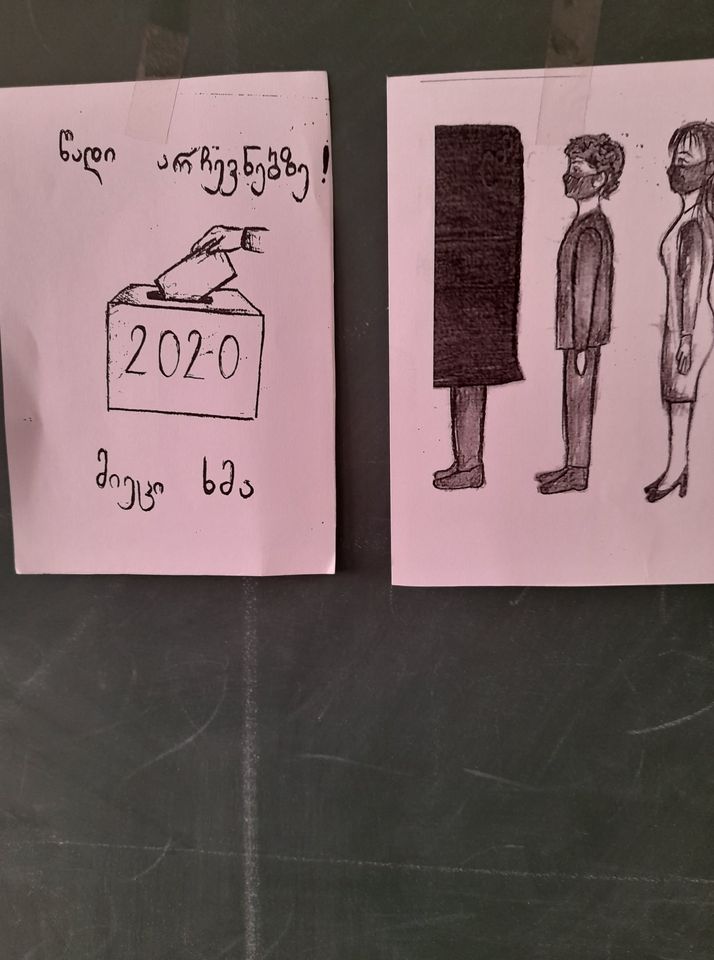 წადი არჩევნებზე!
2020
მიეცი ხმა